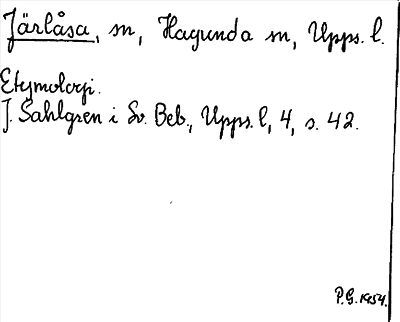 Järlåsa, sn, Hagunda sn, Upps. l.
Etymologi.
J. Sahlgren i Sv. Beb., Upps. l, 4, s. 42.
P.G. 1954.